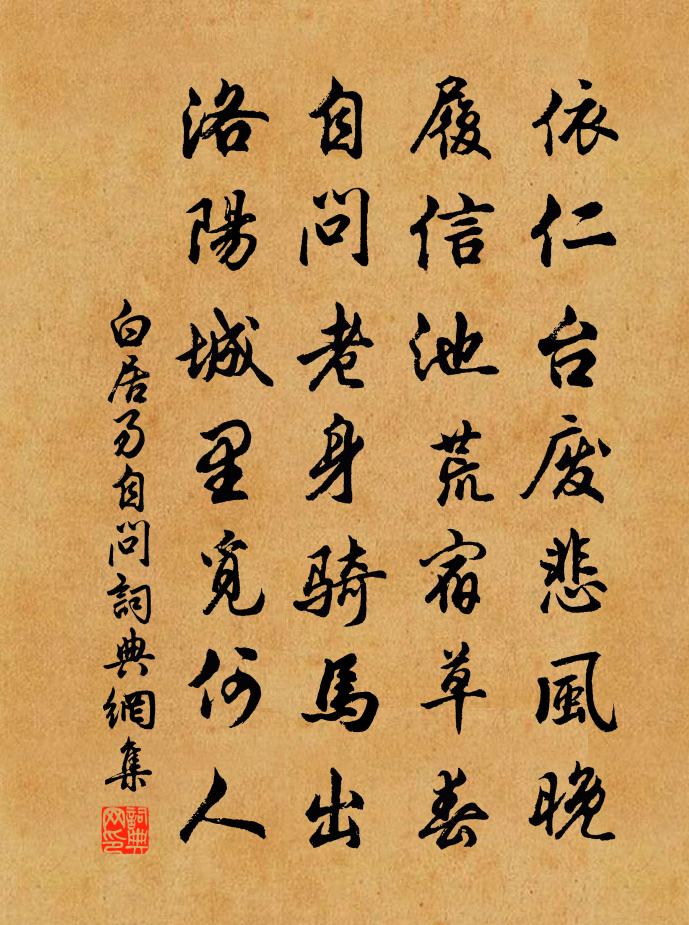 依仁台废悲風晚
履信池荒宿草春
自问老身骑馬出
洛陽城里覓何人
白居易自问詞典網集
詞典网印